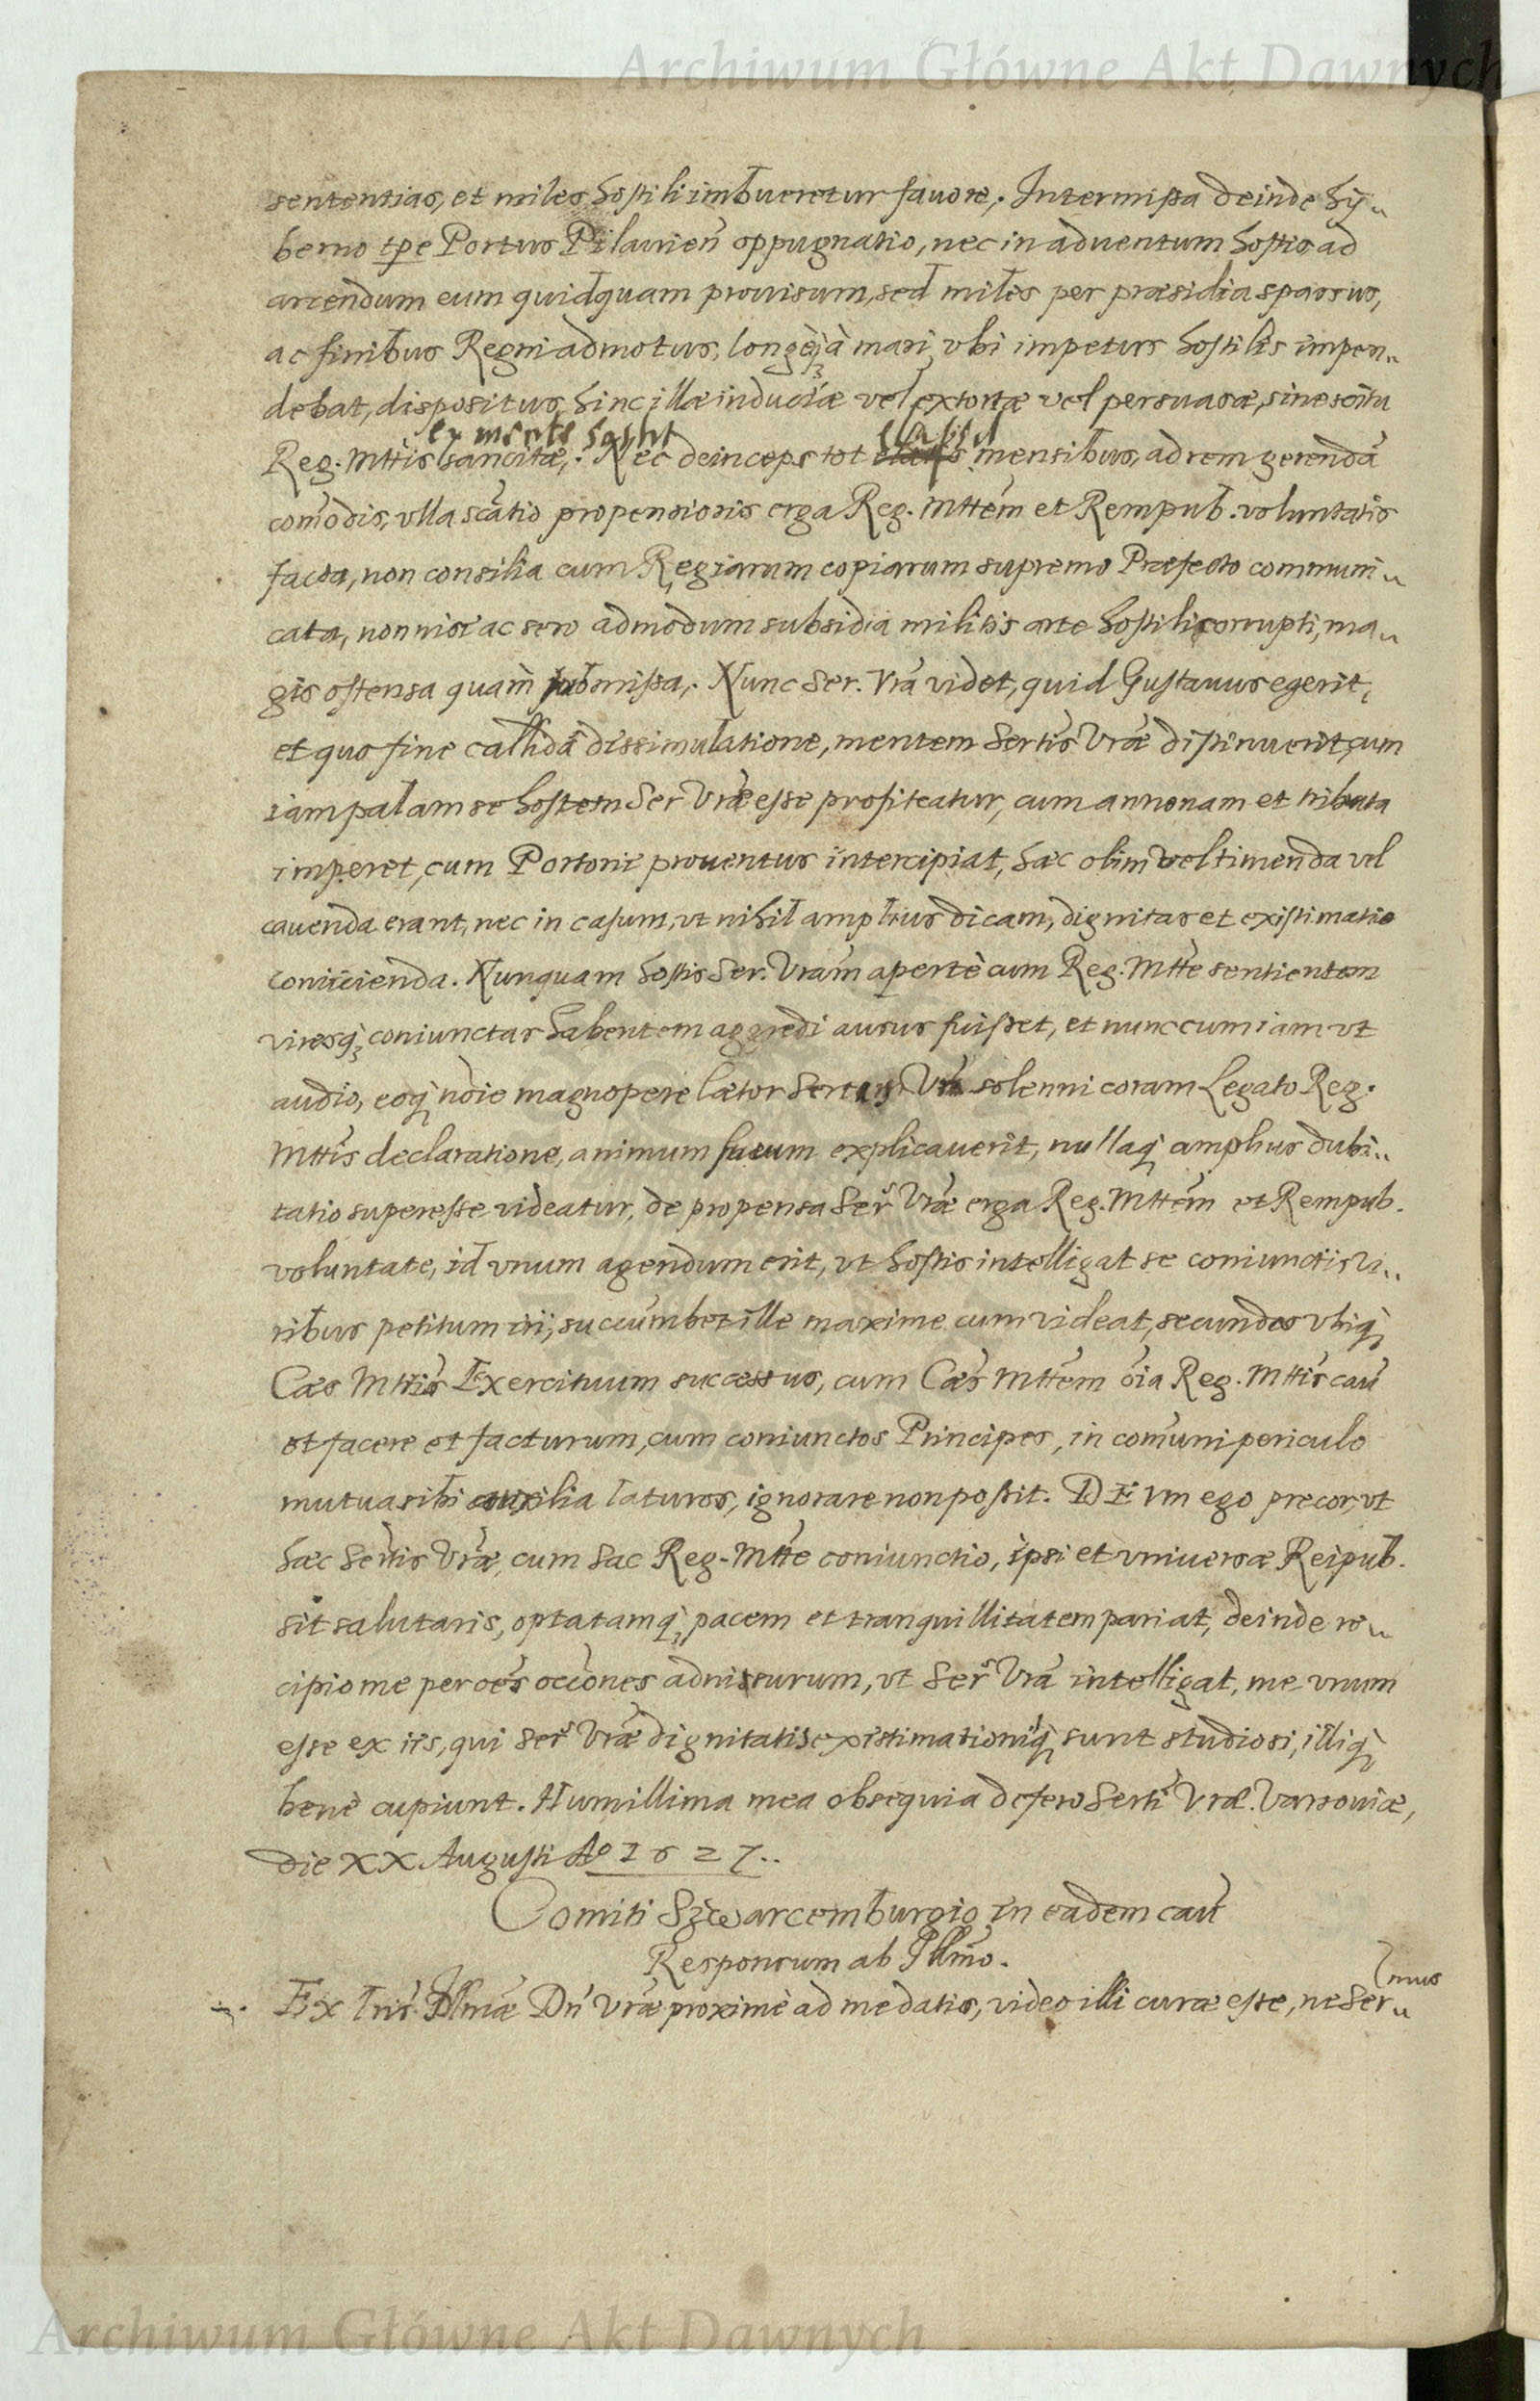 Archiwum Główne Akt Dawnych
sententias, et miles hostili imbueretur fauore. Intermissa deinde hÿ„
berno tpe Portus Pilauien̄ oppugnatio, nec in aduentum hostis ad
arcendum eum quidquam prouisum, sed miles per præsidia sparsus,
ac finibus Regni admotus, longèq́ à mari, vbi impetus hostilis impen„
debat, dispositus, hinc illæ induciæ vel extortæ vel persuasæ, sine scitu
Reg. Mttis sancitæ. Nec deinceps tot mensibus, ad rem gerendā
com̄odis, vlla propensioris erga Reg. Mttem et Rempub. voluntatis
facta, non consilia cum Regiarum copiarum supremo Præfecto communi„
cata, non nisi ac sero admodum subsidia militis arte hostili corrupti, ma„
gis ostensa quam̀ submissa. Nunc Ser. Vrā videt, quid Gustauus egerit,
et quo fine callidâ dissimulatione, mentem Sertis Vræ distinuerit, cum
iam palam se hostem Ser Vræ esse profiteatur, cum annonam et tributa
imperet, cum Portorii prouentus intercipiat, hæc olim vel timenda vel
cauenda erant, nec in casum, vt nihil amplius dicam, dignitas et existimatio
coniicienda. Nunquam hostis Ser. Vram apertè cum Reg. Mtte sentientem
viresq́ coniunctas habentem aggredi ausus fuisset, et nunc cum iam vt
audio, eoq́ nōie magnopere lætor Sertem Vrā solenni coram Legato Reg.
Mttis declaratione, animum suum explicauerit, nullaq́ amplius dubi„
tatio superesse videatur, de propensa Ser Vræ erga Reg. Mttem et Rempub.
voluntate, id vnum agendum erit, vt hostis intelligat se coniunctis vi„
ribus petitum iri, succumbet ille maxime cum videat, secundos vbiq́
Cæs Mttis Exercituum successus, cum Cæs Mttem oīa Reg. Mttis cau
et facere et facturum, cum coniunctos Principes, in com̄uni periculo
mutua sibi auxilia laturos, ignorare non possit. DEVm ego precor, vt
hæc Sertis Vræ, cum Sac Reg. Mtte coniunctio, ipsi et vniuersæ Reipub.
sit salutaris, optatamq́ pacem et tranquillitatem pariat, deinde re„
cipio me per oēs occōnes adnisurum, vt Ser Vrā intelligat, me vnum
esse ex iis, qui Ser Vræ dignitatis existimationiq́ sunt studiosi, illiq́
benè cupiunt. Humillima mea obsequia defero Serti Vræ. Varsouiæ,
die XX Augusti Aº 1627..
Comiti Szwarcemburgio in eadem cau
Responsum ab Illmo.
Ex lris Illmæ Dn̄ Vræ proximè ad me datis, video illi curæ esse, ne Ser„
mus
Archiwum Główne Akt Dawnych